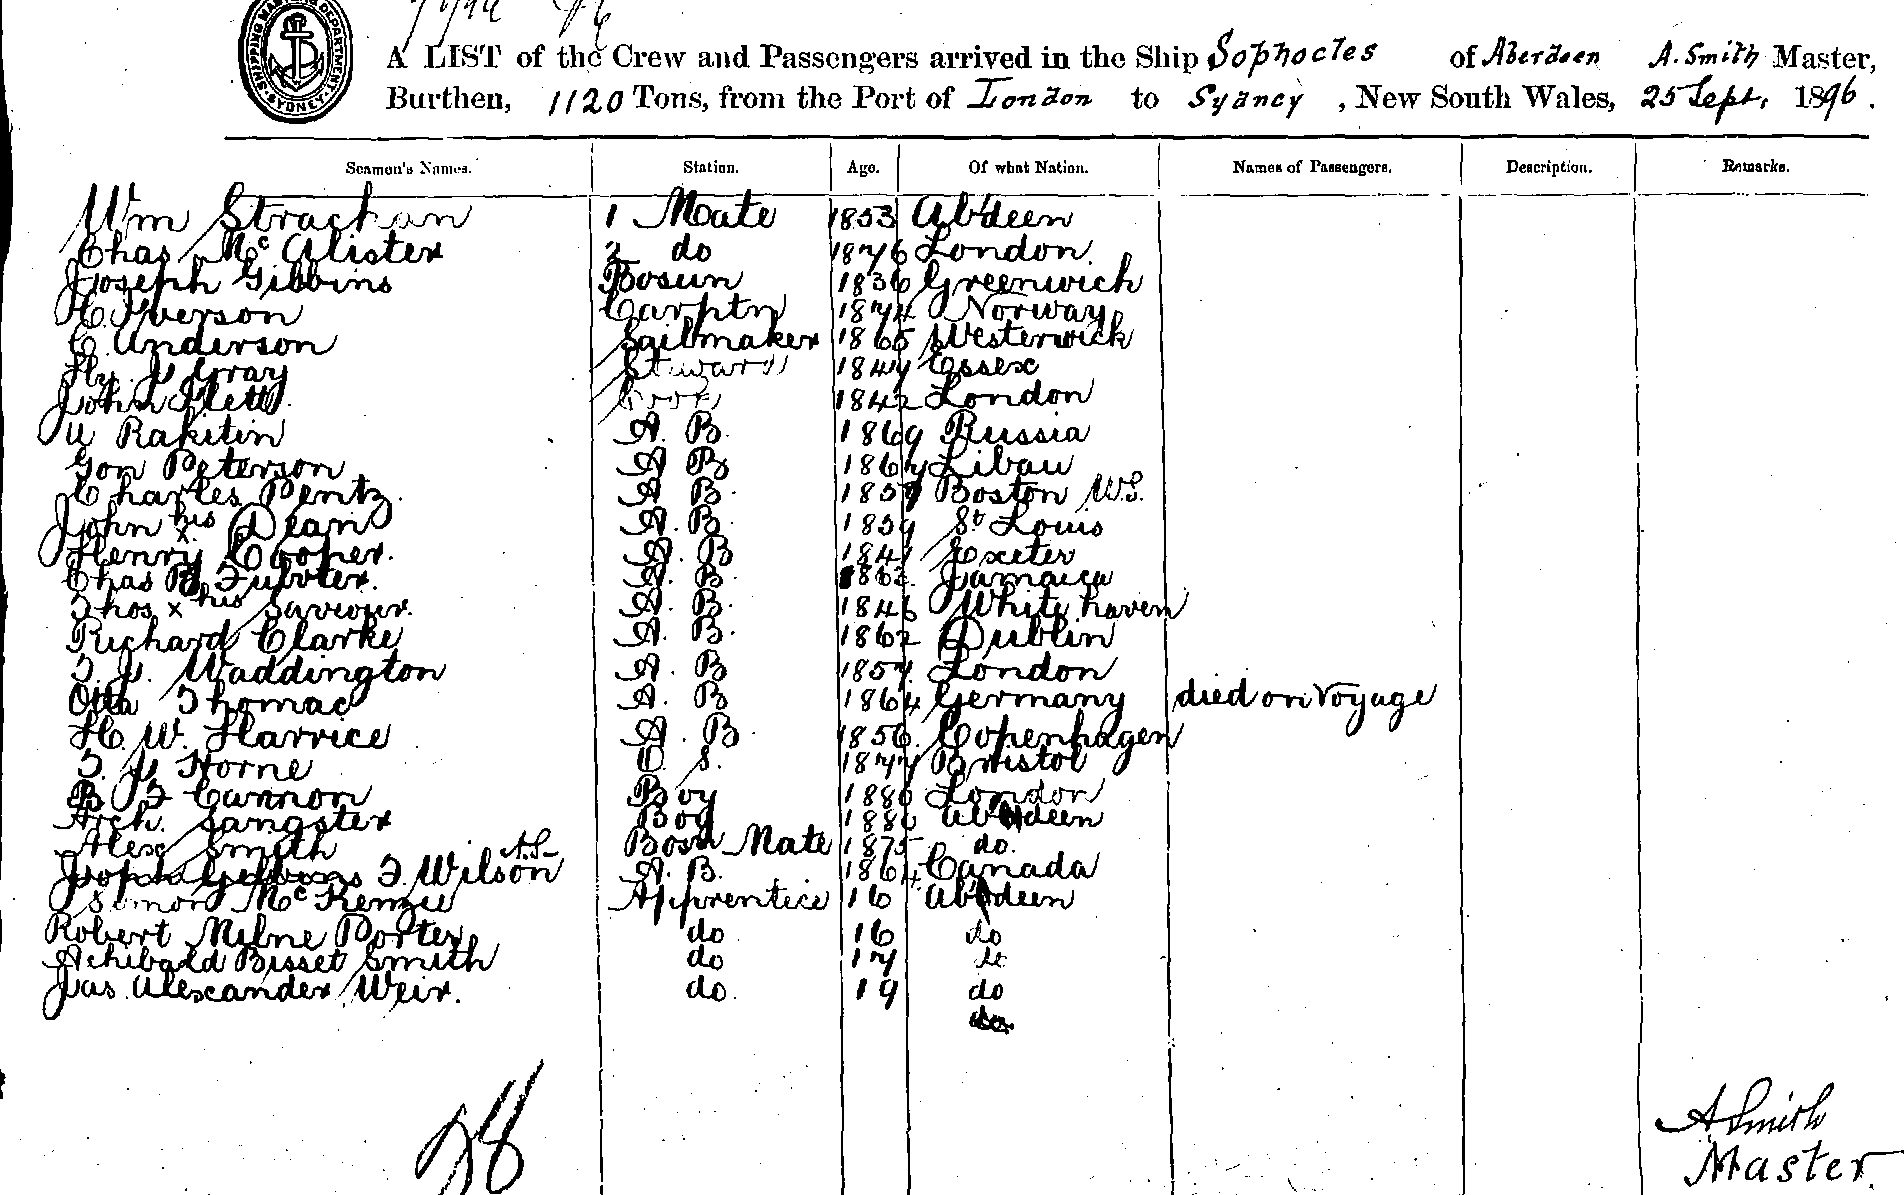 SHIPPING MASTER'S DEPARTMENT. SYDNEY.
A LIST of the Crew and Passengers arrived in the Ship Sophocles of Aberdeen A. Smith Master,
Burthen, 1120 Tons, from the Port of London to Sydney, New South Wales, 25 Sept, 1896.
Seamen's Names. Station. Age. Of what Nation. Names of Passengers. Description. Remarks.
Wm Strachan 1 Mate 1853 Abdeen
Chas Mc Alister 2 do 1876 London
Joseph Gibbins Bosun 1836 Greenwich
H. Iverson Carptn 1874 Norway
C. Anderson Sailmaker 1865 Westerwick
Hy. J Gray Steward 1847 Essex
John Flett Cook 1842 London
Rakitin A. B. 1869 Russia
Gon Peterson A B 1867 Libau
Charles Pentz. A. B. 1859 Boston
John his x Dean A. B. 1859 St Louis
Henry Cooper. A. B 1841 Exeter
Chas A. B. 1862 Jamaica
Thos x his Saviour. A. B. 1846 White haven
Richard Clarke A. B. 1862 Dublin
T. J. Waddington A. B 1857 London
Otto Thomac A. B 1864 Germany died on Voyage
H. W. Harrice A. B 1856 Copenhagen
T. J Horne O. S. 1877 Bristol
B T Cannon Boy 1880 London
Arch. Sangster Boy 1880 Abdeen
Alex Smith Bosn Mate 1875 do.
Joseph Gibbins T Wilson A. B. 1864 Canada
Simon Mc Kenzie Apprentice 16 Abdeen
Robert Milne Porter do 16 do
Achibald Bisset Smith do 17 do
Jas. Alexander Weir. do. 19 do
28
A Smith
Master.